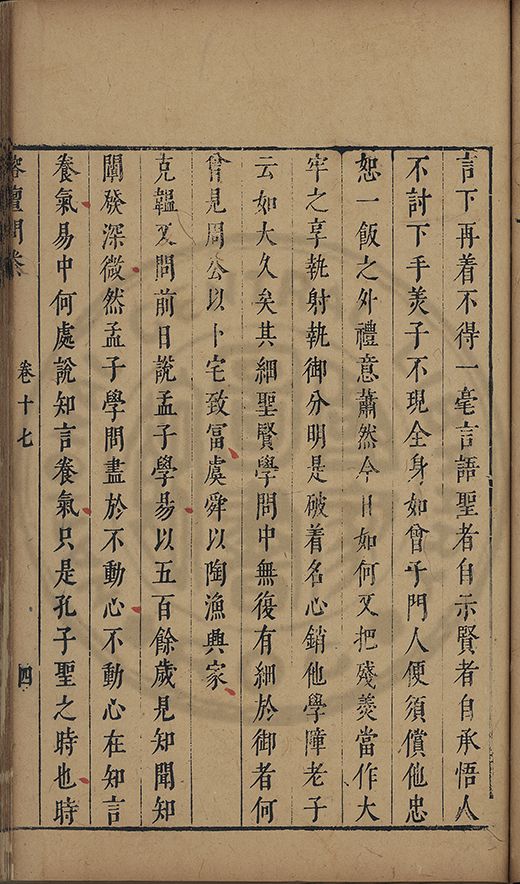 言下再着不得一毫言語聖者自示賢者自承悟人
不討下手羙子不現全身如曾子門人便須償他忠
恕一飯之外禮意蕭然今日如何又把殘羙當作大
牢之享執射執御分明是破着名心銷他學障老子
云如大久矣其細聖賢學問中無復有細於御者何
曾見周公以卜宅致冨虞舜以陶漁興家
克韞又問前日說孟子學易以五百餘歲見知聞知
闡發深微然孟子學問盡於不動心不動心在知言
養氣易中何處說知言養氣只是孔子聖之時也時
榕壇問業
卷十七
四